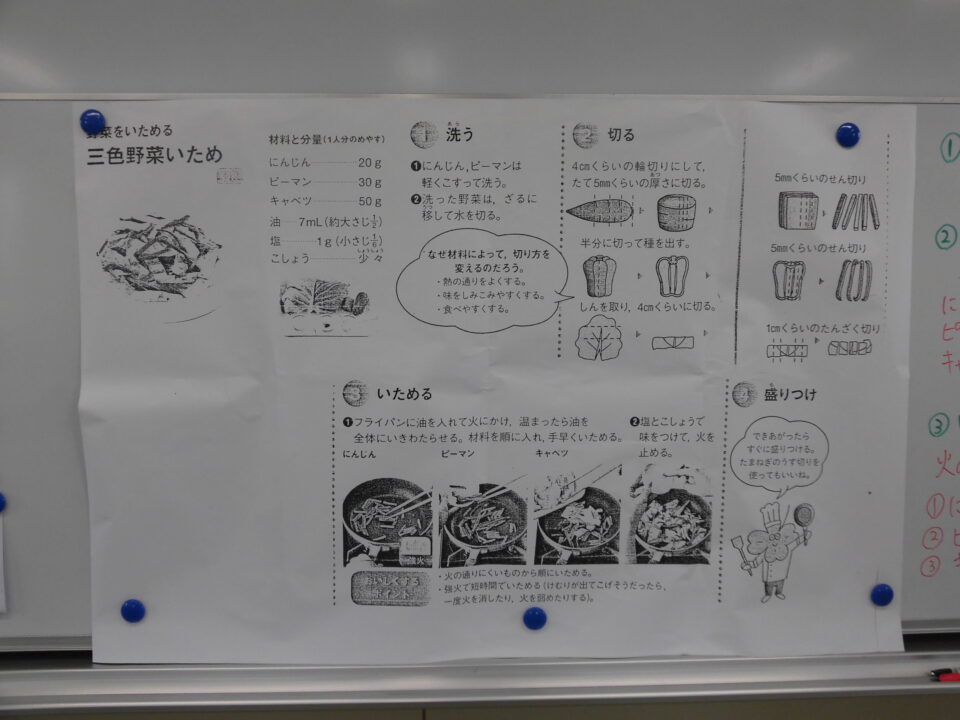 野菜をいためる
三色野菜いため
材料と分量(1人分のめやす)
にんじん…………20g
ピーマン…………30g
キャベツ…………50g
油……7mL(約大さじ1/2)
塩………1g(小さじ1/6)
こしょう………少々
しょうしょう
1 洗う
あら
❶にんじん,ピーマンは
軽くこすって洗う。
❷洗った野菜は,ざるに
移して水を切る。
うつ
なぜ材料によって,切り方を
変えるのだろう。
・熱の通りをよくする。
・味をしみこみやすくする。
・食べやすくする。
2 切る
4cmくらいの輪切りにして,
たて5mmくらいの厚さに切る。
あつ
半分に切って種を出す。
しんを取り,4cmくらいに切る。
5mmくらいのせん切り
5mmくらいのせん切り
1cmくらいのたんざく切り
3 いためる
❶フライパンに油を入れて火にかけ,温まったら油を
全体にいきわたらせる。材料を順に入れ,手早くいためる。
にんじん
ピーマン
キャベツ
❷塩とこしょうで
味をつけて,火を
止める。
強火
おいしくする
ポイント
・火の通りにくいものから順にいためる。
・強火で短時間でいためる(けむりが出てこげそうだったら,
一度火を消したり,火を弱めたりする)。
4 盛りつけ
も
できあがったら
すぐに盛りつける。
たまねぎのうす切りを
使ってもいいね。
①
②
に
ピ
キャ
③
火の
①に
②ピ
③キ